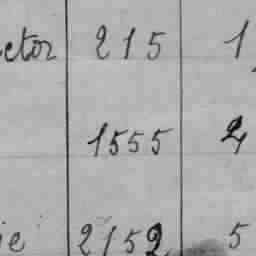 ctor 215 1
1555 2
ie 2152 5